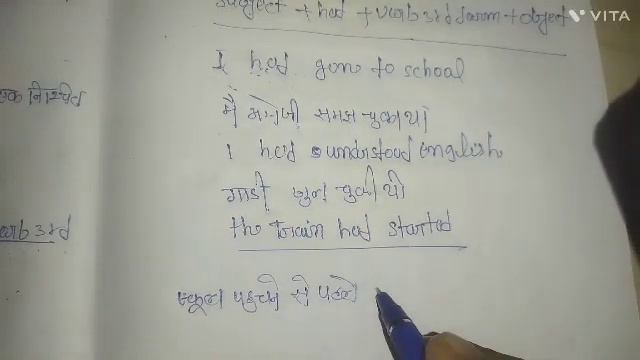 subject + had + verb 3rd form + object
VITA
I had gone to school
एक निश्चित
मैं अंग्रेजी समझ चुका था
I had understood english
गाडी खुल चुकी थी
verb 3rd
the train had started
स्कूल पहुचने से पहले